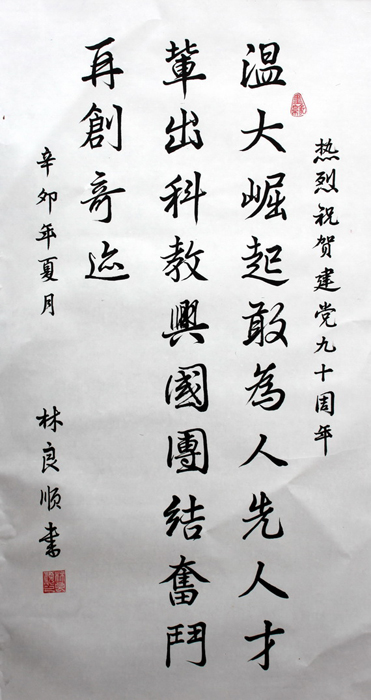 热烈祝贺建党九十周年
温大崛起敢為人先人才
輩出科教興國團结奮鬥
再創奇迹
辛卯年夏月
林良顺书